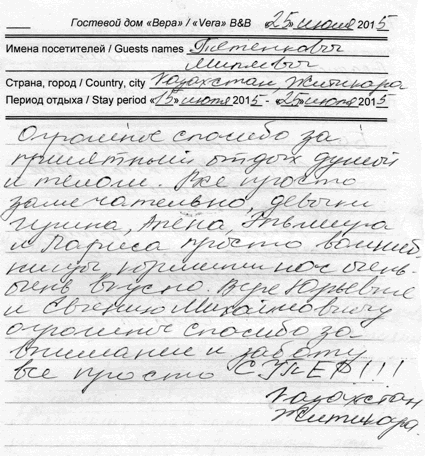 Гостевой дом «Вера» / «Vera» B&B «25» июля 2015
Имена посетителей / Guests names Пятенковы
Страна, город / Country, city Казахстан, Житикара
Период отдыха / Stay period «15» июля 2015 - «25» июля 2015
Огромное спасибо за
приятный отдых душой
и телом. Все просто
замечательно, девочки
Ирина, Алёна, Эльмира
и Лариса просто волшеб-
ницы, кормили нас очень-
очень вкусно. Вере Юрьевне
и Евгению Михайловичу
огромное спасибо за
внимание и заботу
все просто СУПЕР!!!
Казахстан
Житикара.